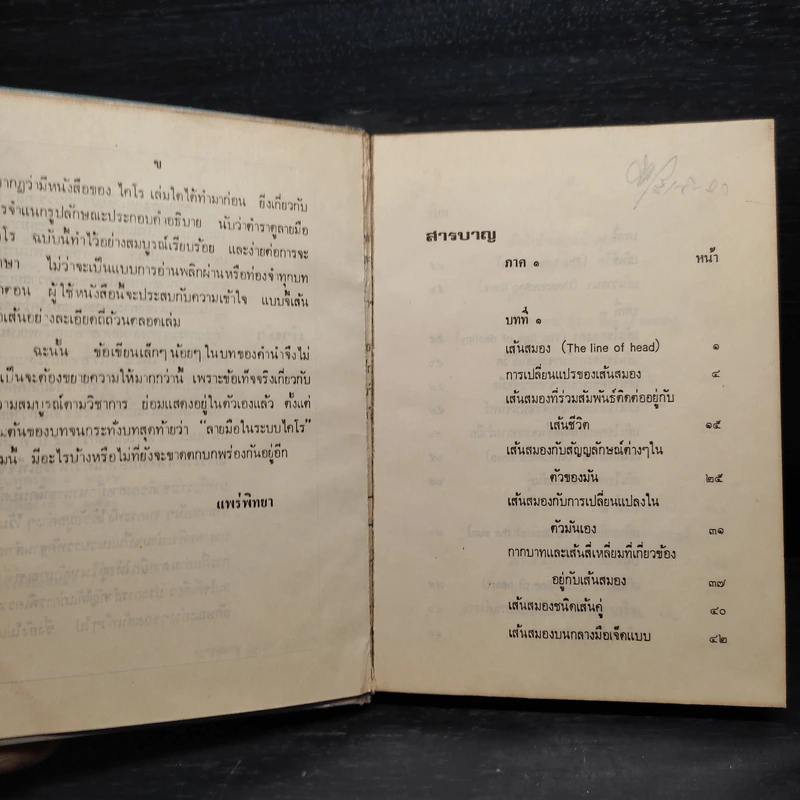 ข
ากฏว่ามีหนังสือของ ไคโร เล่มใดได้ทำมาก่อน ยิ่งเกี่ยวกับ
รจำแนกรูปลักษณะประกอบคำอธิบาย นับว่าตำราดูลายมือ
โร ฉบับนี้ทำไว้อย่างสมบูรณ์เรียบร้อย และง่ายต่อการจะ
กษา ไม่ว่าจะเป็นแบบการอ่านพลิกผ่านหรือท่องจำทุกบท
ตอน ผู้ใช้หนังสือนี้จะประสบกับความเข้าใจ แบบจี้เส้น
อเส้นอย่างละเอียดถี่ถ้วนตลอดเล่ม
ฉะนั้น ข้อเขียนเล็กๆน้อยๆในบทของคำนำจึงไม่
เป็นจะต้องขยายความให้มากกว่านี้ เพราะข้อเท็จจริงเกี่ยวกับ
วามสมบูรณ์ตามวิชาการ ย่อมแสดงอยู่ในตัวเองแล้ว ตั้งแต่
มต้นของบทจนกระทั่งบทสุดท้ายว่า "ลายมือในระบบไคโร"
มนี้ มีอะไรบ้างหรือไม่ที่ยังจะขาดตกบกพร่องกันอยู่อีก
แพร่พิทยา
สารบาญ
ภาค ๑ หน้า
บทที่ ๑
เส้นสมอง (The line of head) ๑
การเปลี่ยนแปรของเส้นสมอง ๔
เส้นสมองที่ร่วมสัมพันธ์ติดต่ออยู่กับ
เส้นชีวิต ๑๕
เส้นสมองกับสัญญลักษณ์ต่างๆใน
ตัวของมัน ๒๕
เส้นสมองกับการเปลี่ยนแปลงใน
ตัวมันเอง ๓๑
กากบาทและเส้นสี่เหลี่ยมที่เกี่ยวข้อง
อยู่กับเส้นสมอง ๓๗
เส้นสมองชนิดเส้นคู่ ๔๐
เส้นสมองบนกลางมือเจ็ดแบบ ๔๒